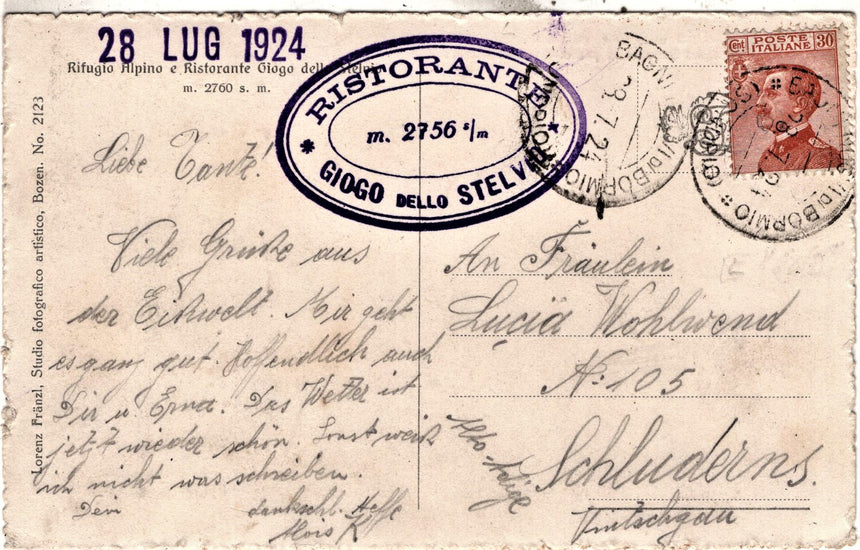 28 LUG 1924
Rifugio Alpino e Ristorante Giogo dello Stelvio
m. 2760 s. m.
RISTORANTE
m. 2756 s/m
GIOGO DELLO STELVIO
BAGNI
28.7.24
DI BORMIO
Cent. POSTE ITALIANE 30
28.7.24
DI BORMIO
Lorenz Fränzl, Studio fotografico artistico, Bozen. No. 2123
Liebe Tante!
Viele Grüße aus
der Eiswelt. Mir geht
es ganz gut. Hoffendlich auch
Dir u. Erna. Das Wetter ist
jetzt wieder schön. Sonst weiß
ich nicht was schreiben.
Dein dankschl. Neffe
Alois
An Fräulein
Lucia Wohlwend
N: 105
Schluderns.
Vintschgau
Alto-Adige